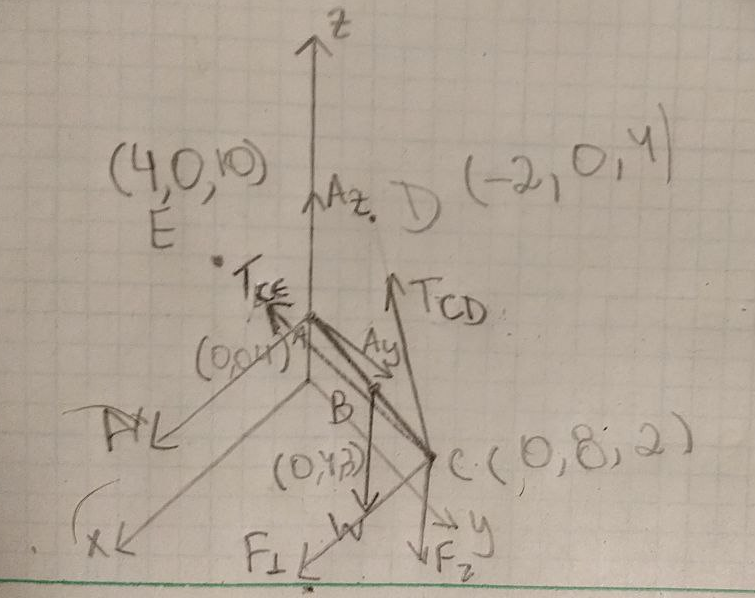 z
(4,0,10)
E
Az
D
(-2,0,4)
TCE
TCD
A
(0,0,4)
Ay
B
(0,4,3)
C (0,8,2)
x
W
F1
F2
y